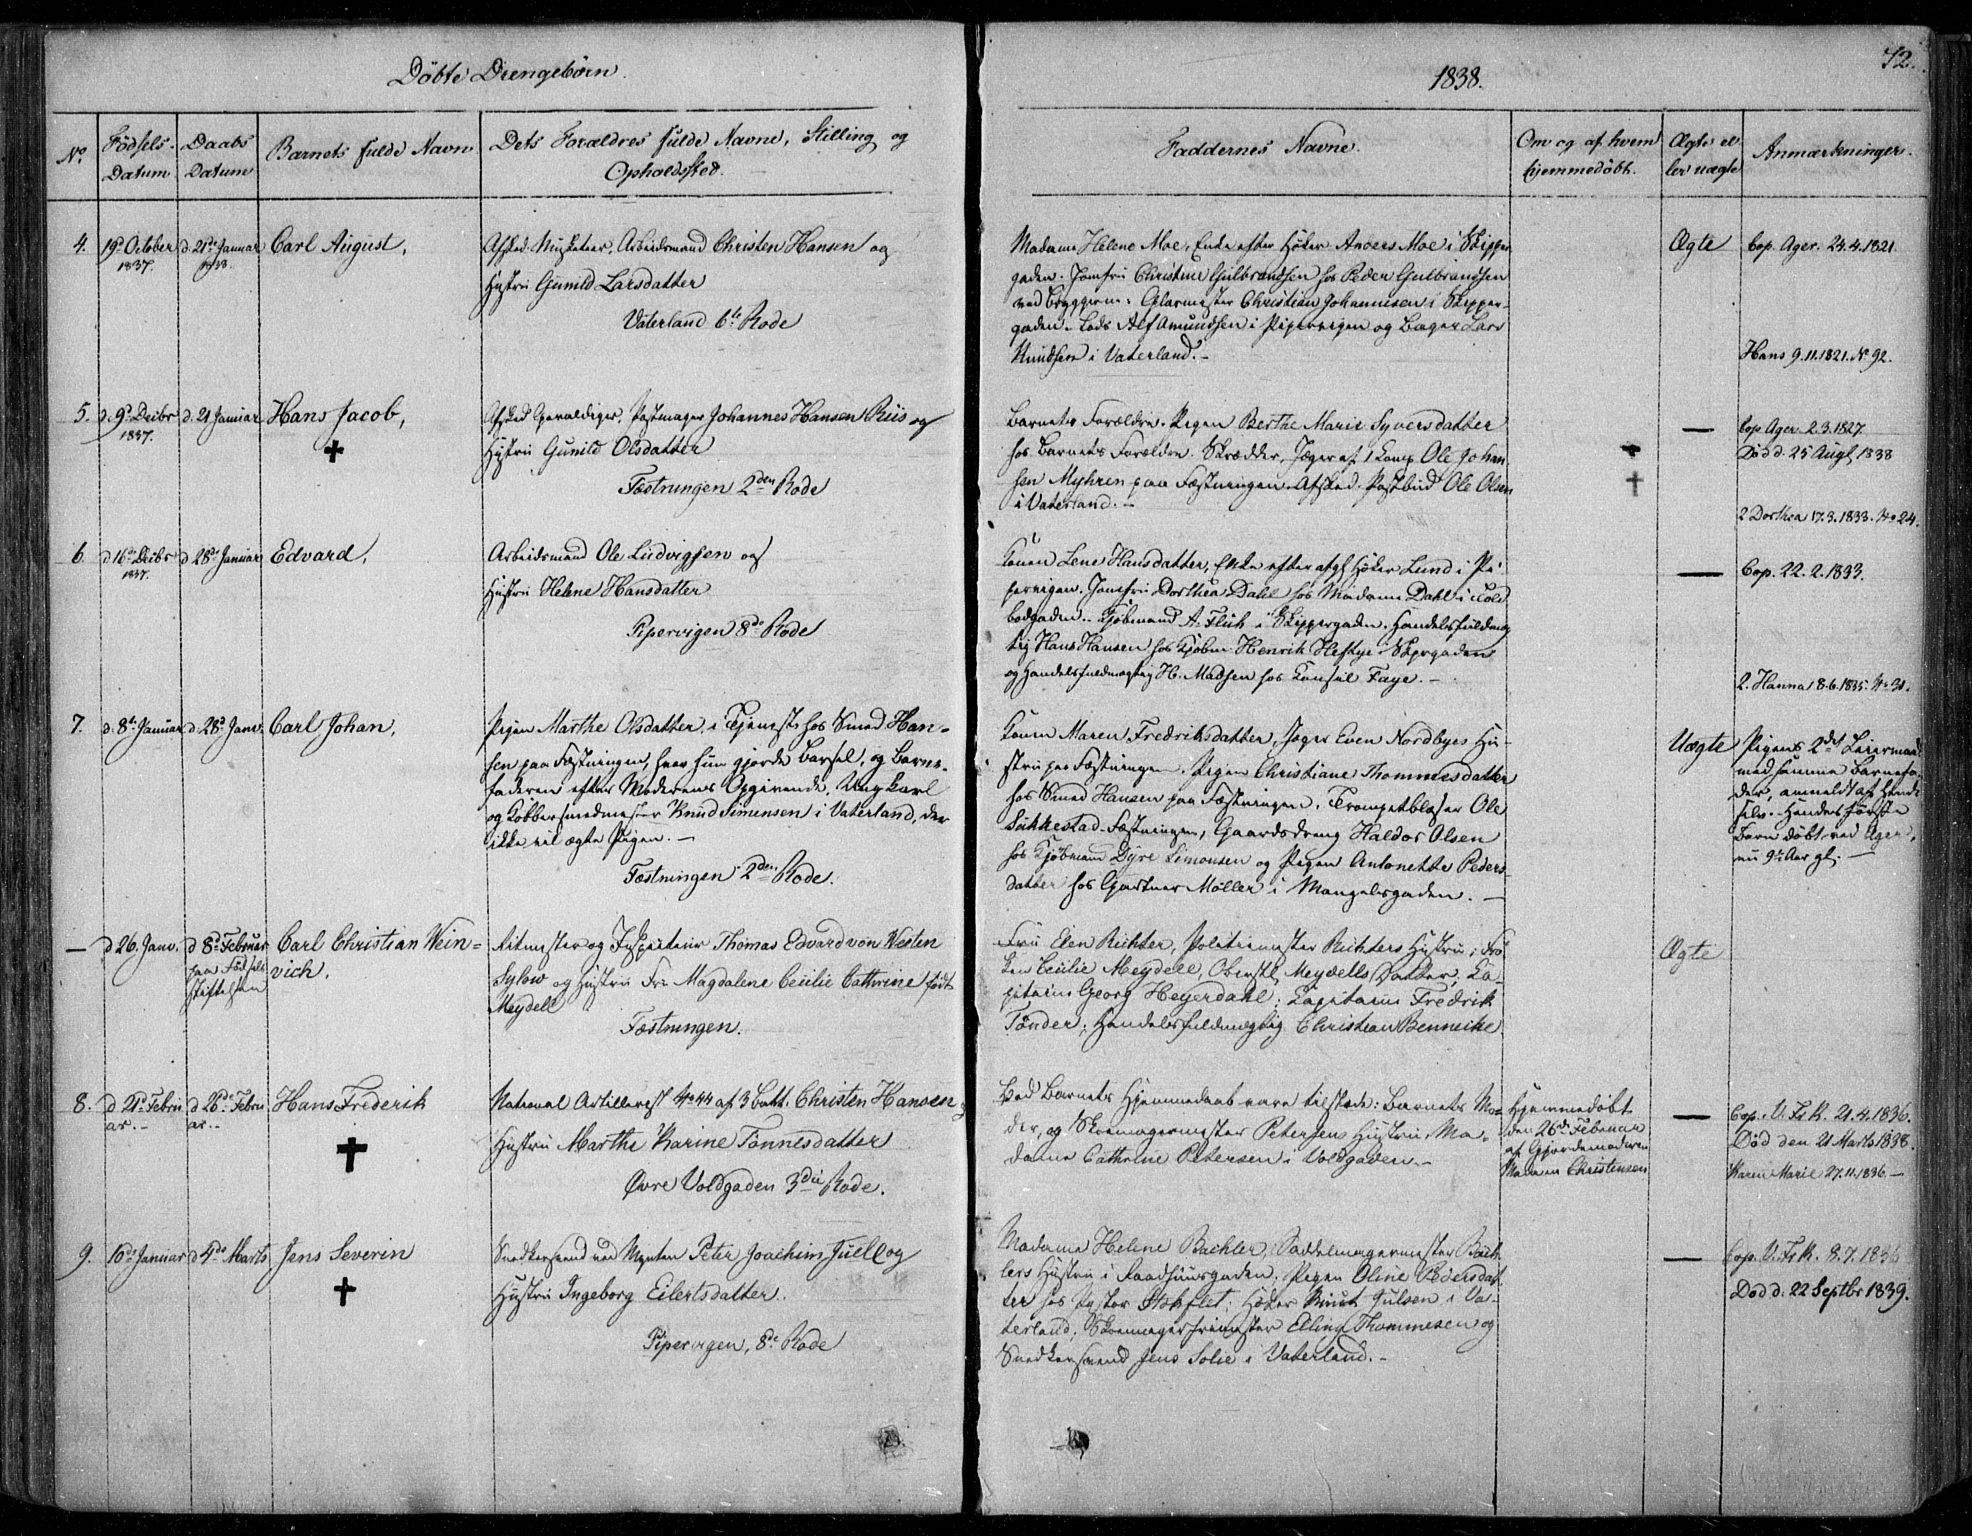 Döbte Drengebörn.
1838.
42.
No.
Födsels-Datum
Daabs Datum
Barnets fulde Navn
Dets Forældres fulde Navne, Stilling og
Opholdssted.
Faddernes Navne.
Om og af hvem
hjemmedöbt.
Ægte el-
ler uægte
Anmærkninger.
4.
19d October
1837.
d. 21de Januar
1838.
Carl August,
Afsked Musketeer, Arbeidsmand Christen Hansen og
Hustru Gunild Larsdatter
Vaterland 6te Rode
Madame Helene Moe, Enke efter Höker Anders Moe i Skipper
gaden. Jomfru Christine Gulbrandsen hos Peder Gulbrandsen
ved Bryggerne. Glarmester Christian Johannesen i Skipper-
gaden. Lods Alf Amundsen i Pipervigen og Bager Lars
Knudsen i Vaterland. -
Ægte
Cop. Ager. 24.4.1821.
Hans 9.11.1821. No 92.
5.
d. 9d Decbr
1837.
d. 21 Januar
Hans Jacob,
Afsked Gevaldiger, Postmager Johannes Hansen Riis og
Hustru Gunild Olsdatter
Fæstningen 2den Rode
Barnets Forældre. Pigen Berthe Marie Syversdatter
hos Barnets Forældre. Skrædder, Jæger af 1 Komp. Ole Johan
sen Myhren paa Fæstningen. Afsked. Postbud Ole Olsen
i Vaterland. -
—
Cop Ager. 2.3.1827.
Död d. 25 Augt 1838
2 Dorthea 17.3.1833. No 24.
6.
d 16de Decbr
1837.
d 28de Januar
Edvard,
Arbeidsmand Ole Ludvigsen og
Hustru Helene Hansdatter
Pipervigen 8de Rode
Konen Lene Hansdatter, Enke efter afg. Höker Lund i Pi
pervigen. Jomfru Dorthea Dahl hos Madame Dahl i Told
bodgaden. Kjöbmand A. Flük i Skippergaden. Handelsfuldmæg
tig Hans Hansen hos Kjöbm. Henrik Heftye i Skprgaden
og Handelsfuldmægtig H. Madsen hos Konsul Faye. -
—
Cop. 22.2.1833.
2. Hanna 8.6.1835. No 31.
7.
d. 8de Januar
d: 28d Janv.
Carl Johan,
Pigen Marthe Olsdatter, i Tjeneste hos Smed Han-
sen paa Fæstningen, hvor hun gjorde Barsel, og Barne-
faderen efter Moderens Opgivende, Ungkarl
og Kobbersmedmester Knud Simensen i Vaterland, der
ikke vil ægte Pigen. -
Fæstningen 2den Rode.
Konen Maren Fredriksdatter, Jæger Even Nordbyes Hu-
stru paa Fæstningen. Pigen Christiane Thommesdatter
hos Smed Hansen paa Fæstningen. Trompetblæser Ole
Sukkestad Fæstningen, Gaardsdreng Haldor Olsen
hos Kjöbmand Dyre Simonsen og Pigen Antonette Peders
datter hos Gartner Möller i Mangelsgaden. —
Uægte
Pigens 2det Leiermaal
med samme Barnefa-
der, anmeldt af hende
selv. Hendes förste
Barn döbt ved Ager,
nu 9 Aar gl. —
—
d 26. Janv.
d 8de Februar
paa Födsels
stiftelsen
Carl Christian Wein-
vich.
Ritmester og Inspecteur Thomas Edvard von Westen
Sylow og Hustru Fru Magdalene Cecilie Cathrine födt
Meydell
Fæstningen.
Fru Elen Richter, Politimester Richters Hustru; Frö
ken Cecilie Meydell, Oberstl. Meydells Datter; Ca-
pitain Georg Heyerdahl; Capitain Fredrik
Tönder; Handelsfuldmægtig Christian Bennecke.
Ægte
8.
d 21d Febru
ar. -
d 26de Febru
ar. -
Hans Frederik
National Artillerist No 44 af 3 Batt. Christen Hansen
Hustru Marthe Karine Tönnesdatter
Övre Voldgaden 3die Rode.
Ved Barnets Hjemmedaab vare tilstede: Barnets Mo-
der, og Skomagermester Petersens Hustru, Ma-
dame Cathrine Petersen i Voldgaden. -
Hjemmedöbt
den 26d Februar
af Gjordemoderen
Madam Christensen
—
Cop. V. Fr. K. 21.4.1836.
Död den 21 Marts 1838.
Karen Marie 27.11.1836. —
9.
10de Januar
d 4de Marts
Jens Severin
Snedkersvend ved Mynten Peter Joachim Juell og
Hustru Ingeborg Eilertsdatter.
Pipervigen, 8de Rode
Madame Helene Bachler, Saddelmagermester Bach-
lers Hustru i Raadhuusgaden; Pigen Oline Pedersdat
ter hos Pastor Stokflet; Höker Knut Gulsen i Va-
terland; Skomagerfrimester Elling Thommesen og
Snedkersvend Jens Solie i Vaterland. -
—
Cop. V. Fr. K. 8.7.1836
Död d. 22 Septbr 1839.